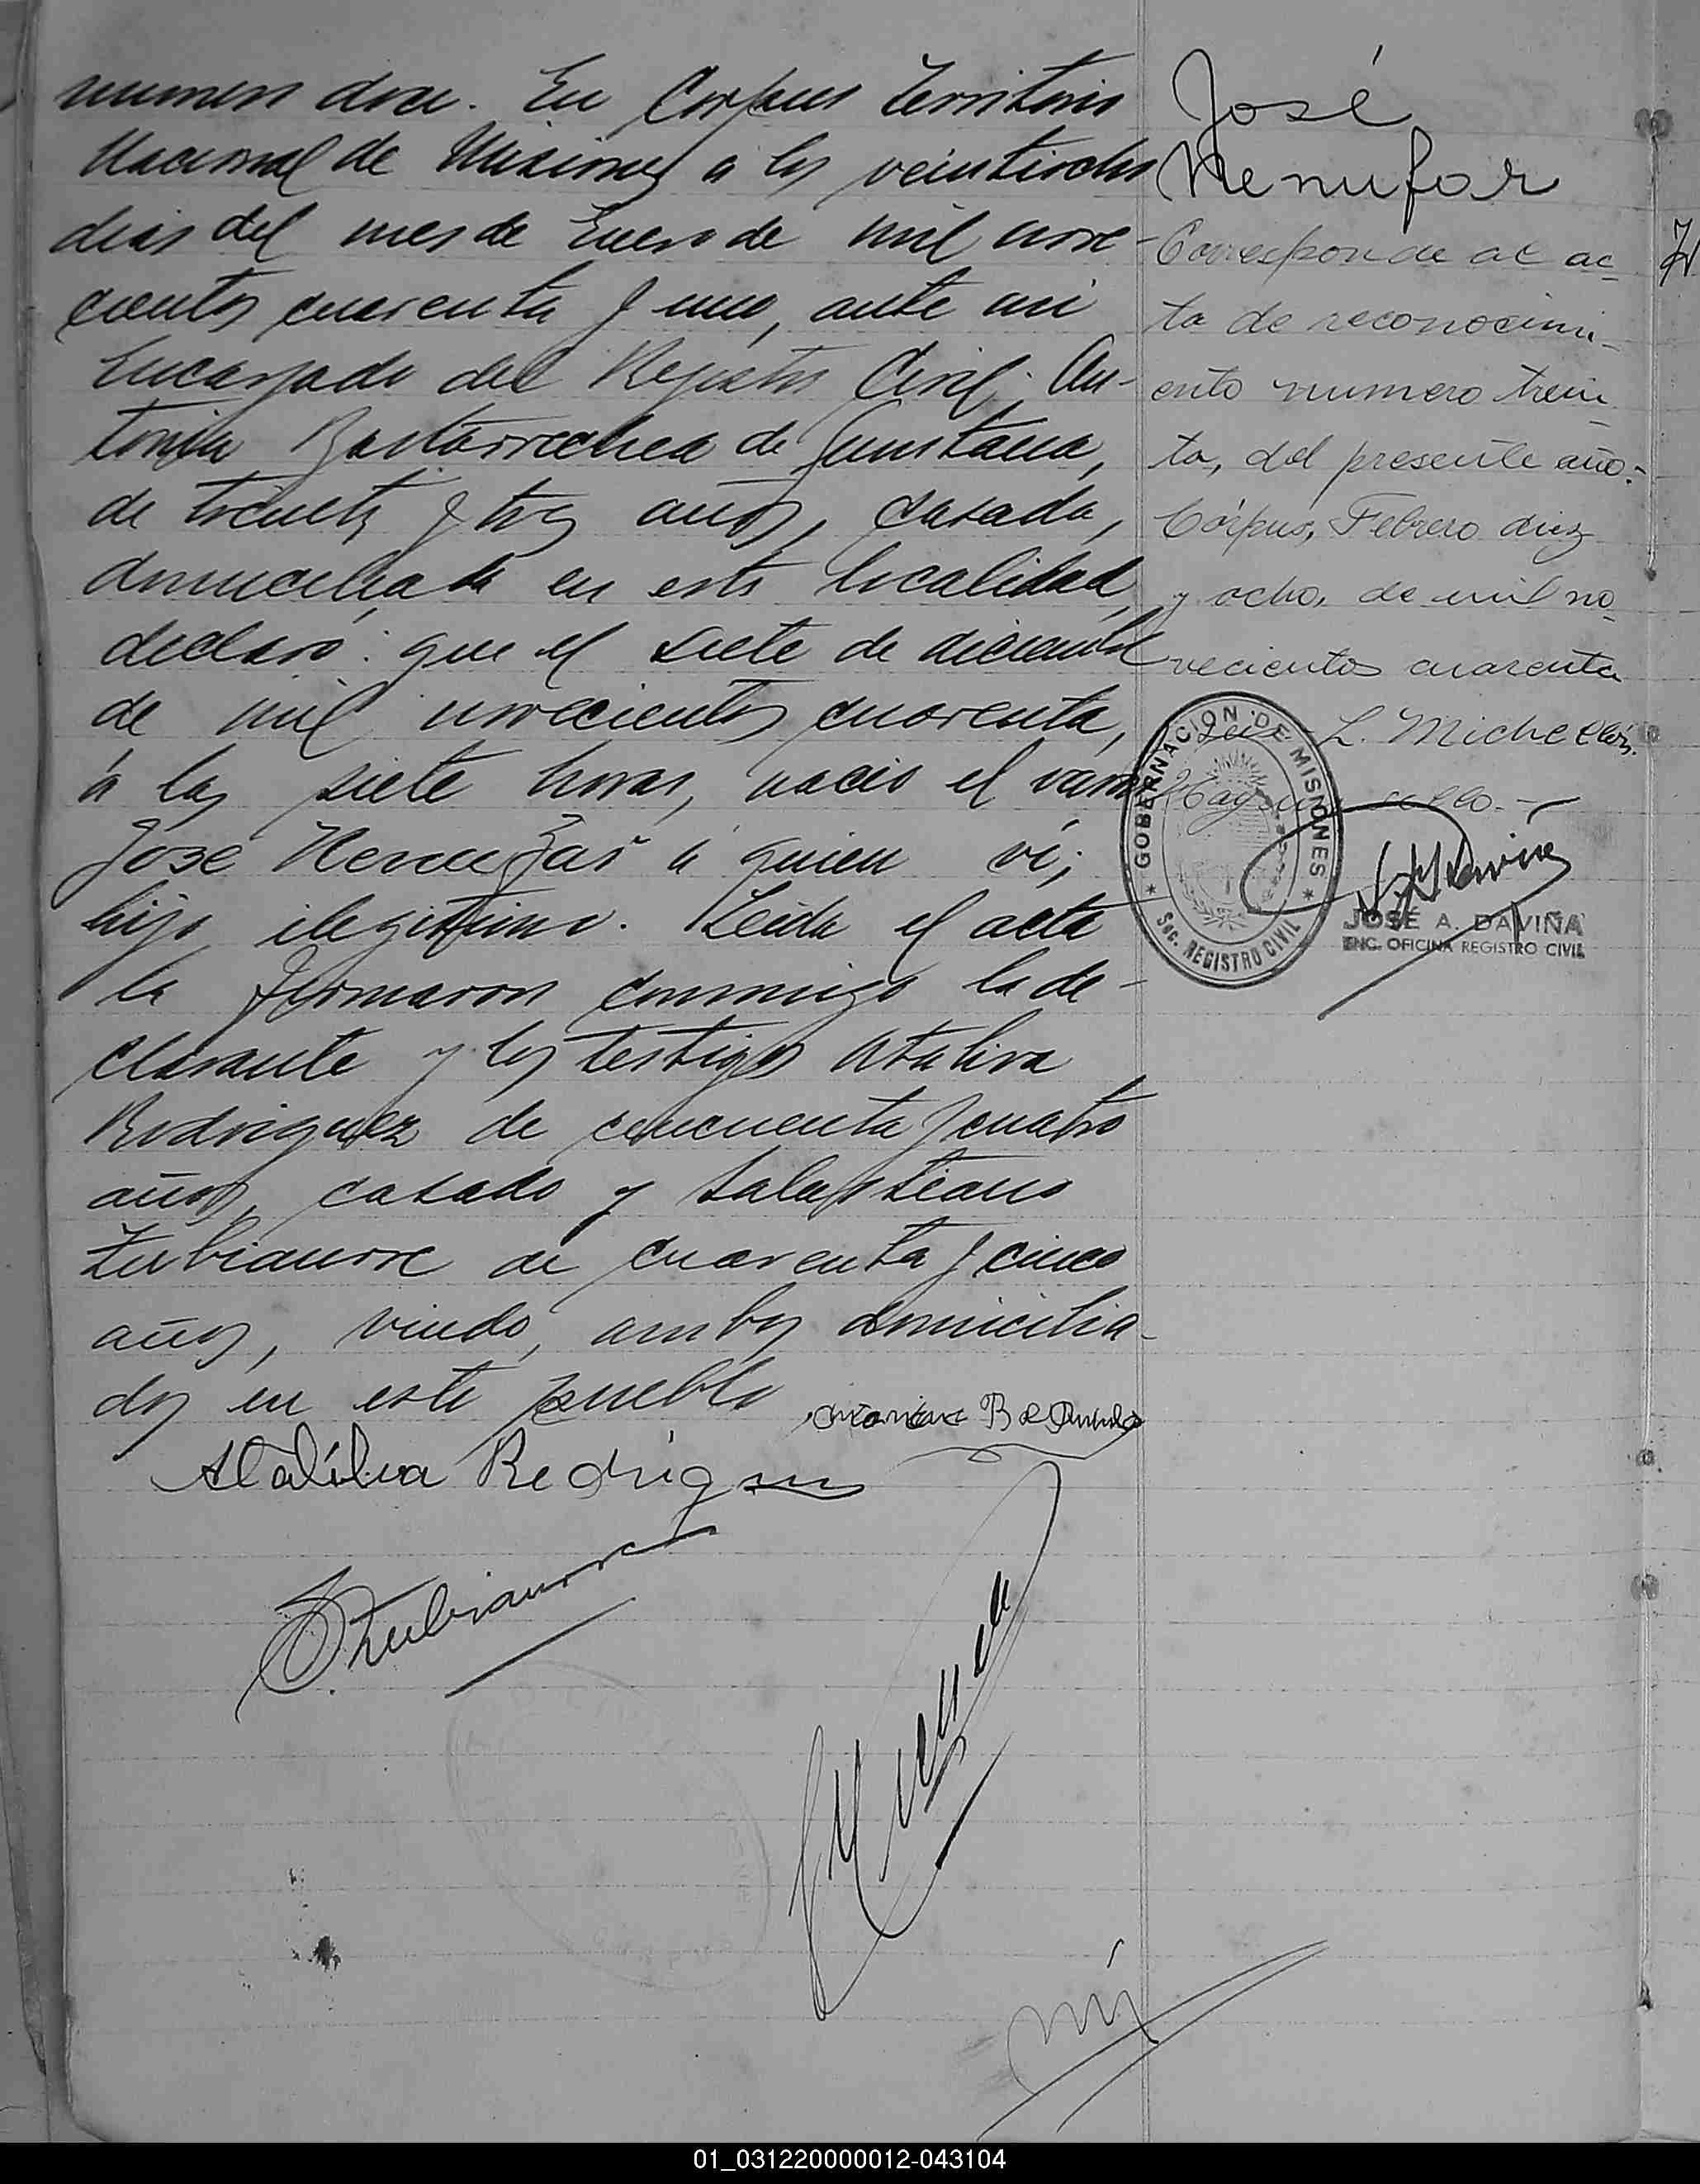 numero doce. En Corpus Territorio
Nacional de Misiones a los veintiocho
dias del mes de Enero de mil nove-
cientos cuarenta y uno, ante mi
Encargado del Registro Civil; An-
tonia Bastarrechea de Quintana,
de treinta y tres años, casada,
domiciliada en esta localidad,
declaró: que el siete de diciembre
de mil novecientos cuarenta,
á las siete horas, nació el varon
José Nenufar á quien ví;
hijo ilegitimo. Leida el acta
la firmaron conmigo la de-
clarante y los testigos Ataliva
Rodriguez de cincuenta y cuatro
años, casado y Salustiano
Zubiaurre de cuarenta y cinco
años, viudo, ambos domicilia-
dos en este pueblo
Antonia B de Quintana
Atalíva Rodriguez
S Zubiaurre
José
Nenufar
Corresponde al ac
ta de reconocimi-
ento numero trein
ta, del presente año.-
Córpus, Febrero diez
y ocho, de mil no
vecientos cuarenta
L. Michel
Hay sello.-
GOBERNACION DE MISIONES
Sec. REGISTRO CIVIL
JOSÉ A. DAVIÑA
ENC. OFICINA REGISTRO CIVIL
01_031220000012-043104